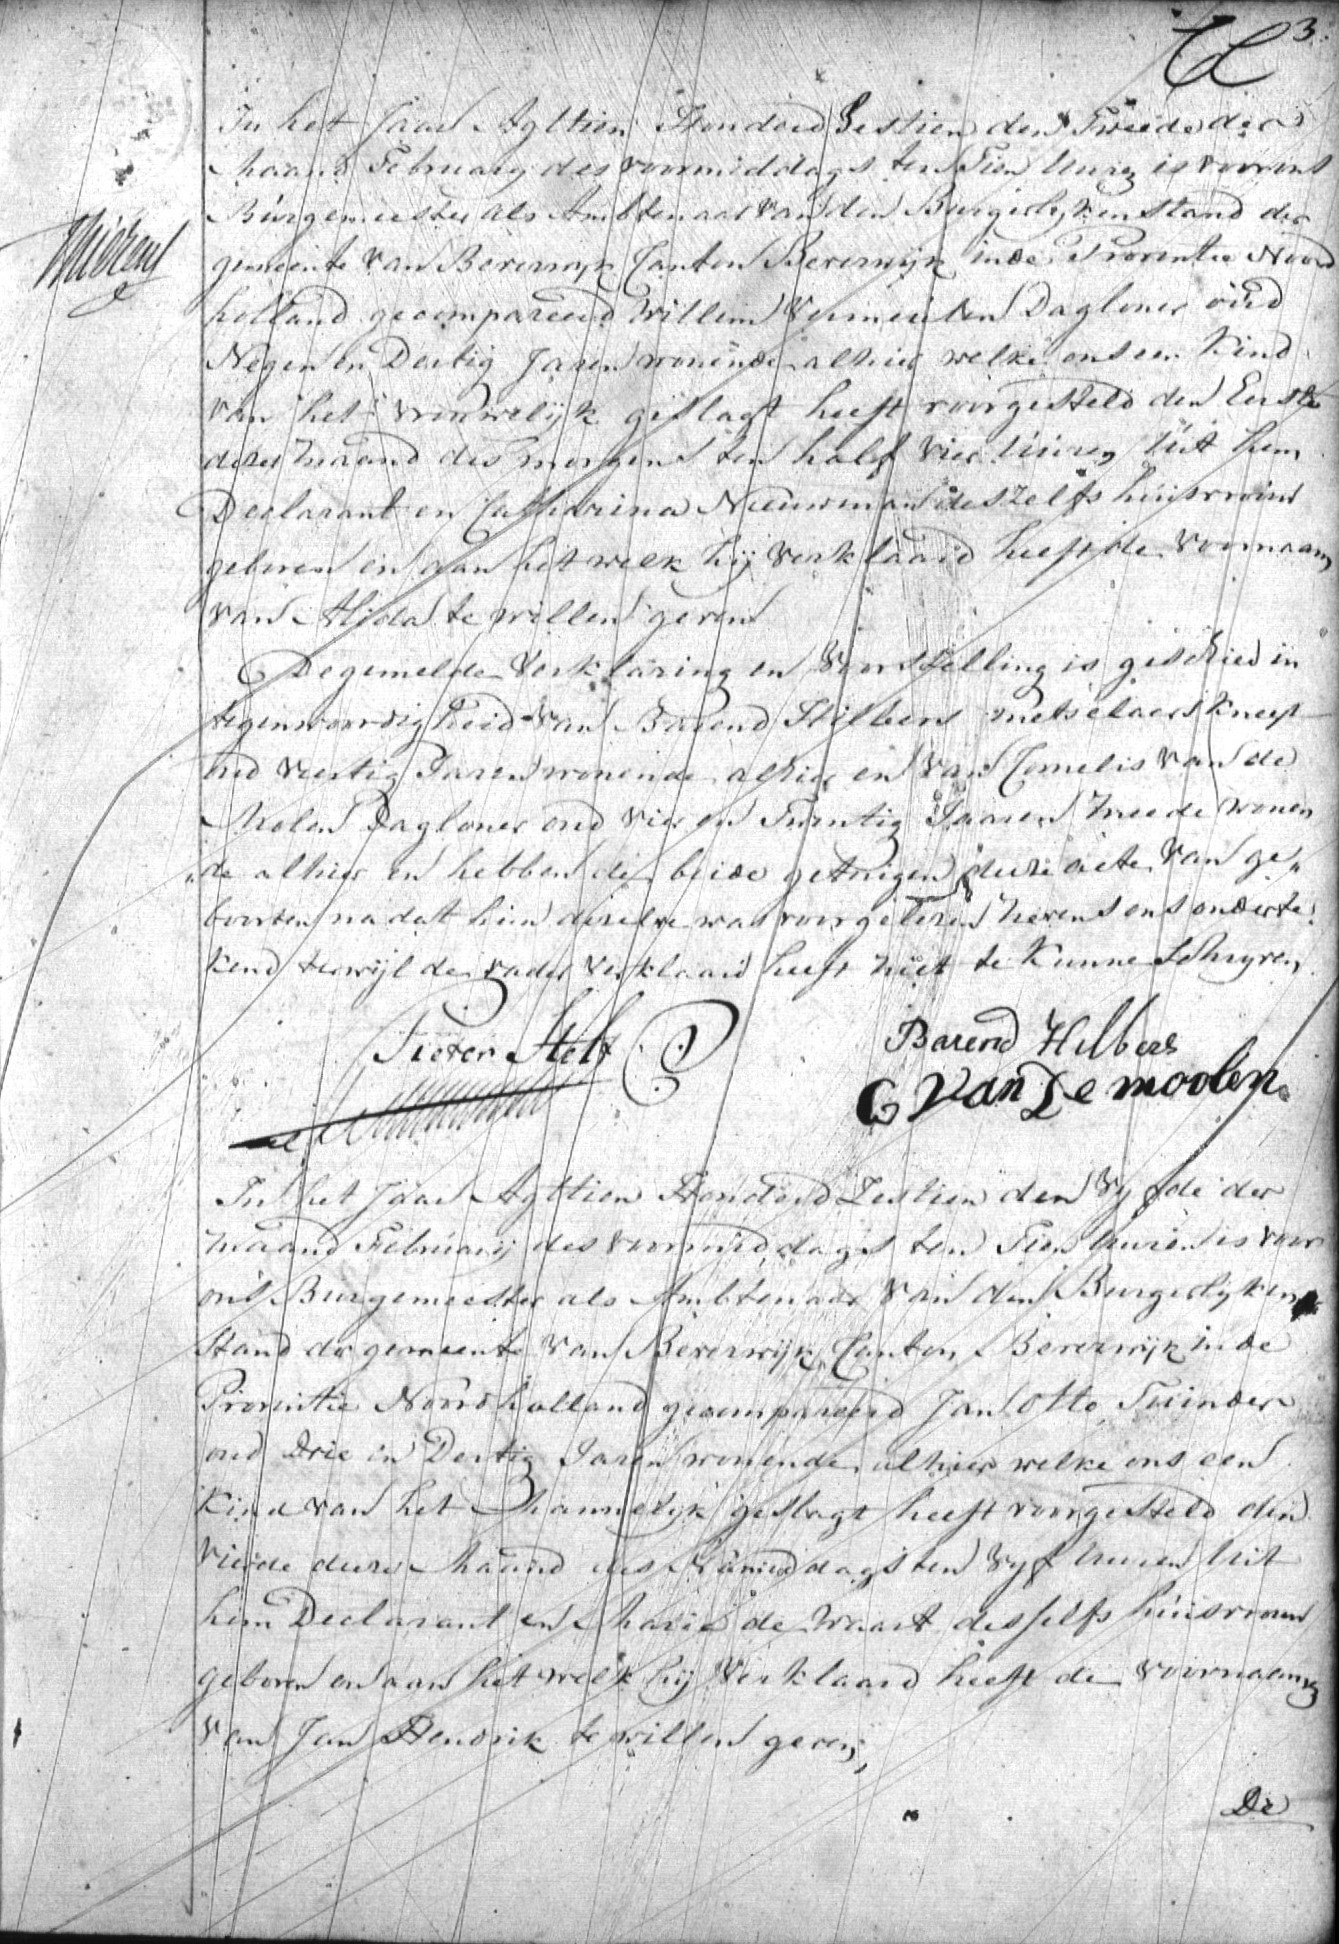 3.
In het Jaar Agttien Honderd Sestien den Tweede der
Maand February des voormiddags ten Tien Uuren is voor ons
Burgemeester als Ambtenaar van den Burgerlyken Stand der
gemeente van Beverwyk Canton Beverwijk in de Provintie Noord
holland gecompareerd Willem Vermeulen Dagloner oud
Negen en Dertig Jaren wonende alhier welke ons een Kind
van het vrouwelijk geslagt heeft voorgesteld den Eerste
dezer Maand des morgens ten half vier Uuren Uit hem
Declarant en Catharina Nieuwman deszelfs huisvrouw
geboren en aan het welk hij verklaard heeft de voornaam
van Alida te willen geven
De gemelde Verklaring en Voorstelling is geschied in
tegenwoordigheid van Barend Hilbers metselaers knegt
oud veertig Jaren wonende alhier en van Cornelis van de
Molen Dagloner oud vier en Twintig Jaaren mede wonen
de alhier en hebben de beide getuigen deze acte van ge
boorten na dat hun dezelve was voorgelezen nevens ons onderte
kend terwijl de vader verklaard heeft niet te kunne Schryven
Pieter Stelt
Barend Hilbers
C Van De moolen
In het Jaar Agttien Honderd Zestien den Vyfde der
Maand February des voormiddags ten Tien Uuren is voor
ons Burgemeester als Ambtenaar Van den Burgerlyken
Stand der gemeente van Beverwijk Canton Beverwijk in de
Provintie Noordholland gecompareerd Jan Otto Tuinder
oud Drie en Dertig Jaren wonende alhier welke ons een
Kind van het Mannelyk geslagt heeft voorgesteld den
Vierde dezer Maand des Namiddags ten Vyf Uuren Uit
hem Declarant en Maria de Waart desselfs huisvrouw
geboren en aan het welk hij Verklaard heeft de voornaam
van Jan Hendrik te willen geven,
De